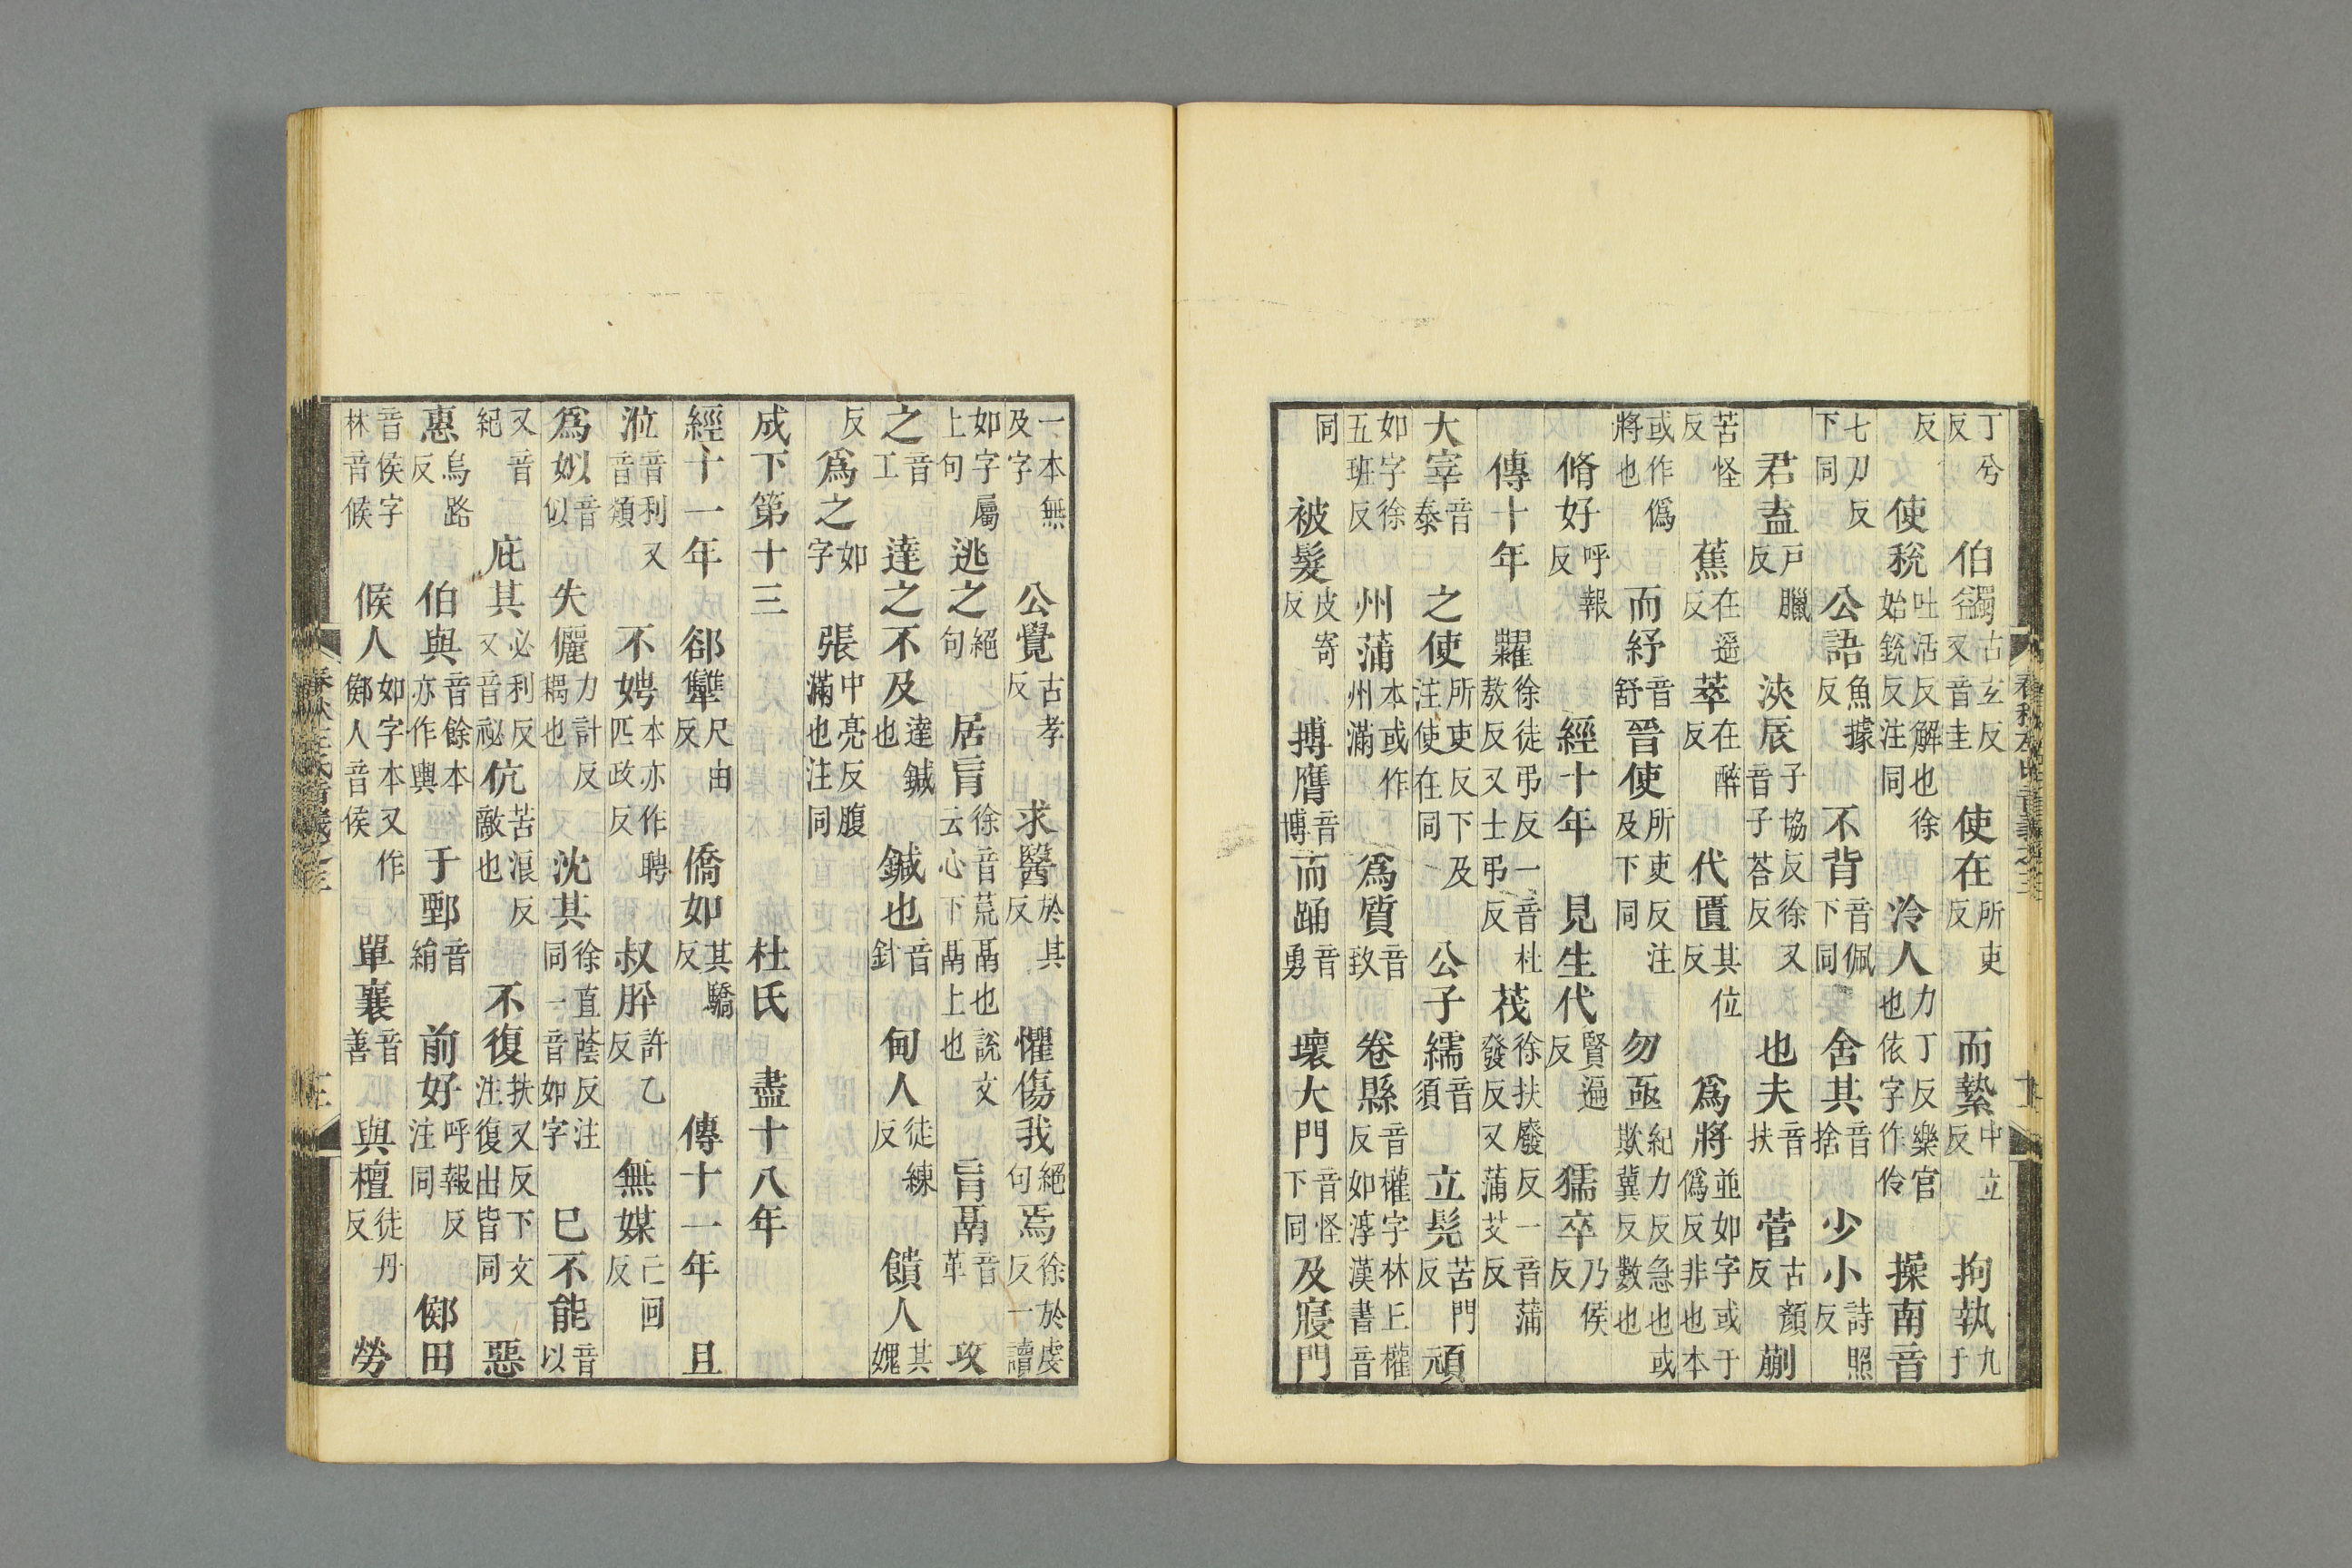 丁兮反 伯蠲古玄反又音圭 使在所吏反 而縶中立反 拘執九于
反 使稅吐活反解也徐始銳反注同 泠人力丁反樂官也依字作伶 操南音
七刀反下同 公語魚據反 不背音佩下同 舍其音捨 少小詩照反
君盍戶臘反 浹辰子協反徐又音子荅反 也夫音扶 菅古顏反 蒯
苦怪反 蕉在遥反 萃在醉反 代匱其位反 爲將並如字或于僞反非也本
或作僞將也 而紓音舒 晉使所吏反注及下同 勿亟紀力反急也或欺冀反數也
脩好呼報反 經十年 見生代賢遍反 獳卒乃侯反
傳十年 糴徐徒弔反一音杜敖反又士弔反 茷徐扶廢反一音蒲發反又蒲艾反
大宰音泰 之使所吏反下及注使在同 公子繻音須 立髡苦門反 頑
如字徐五班反 州蒲本或作州滿 爲質音致 卷縣音權字林丘權反如淳漢書音
同 被髮皮寄反 搏膺音博 而踊音勇 壞大門音怪下同 及寢門
一本無及字 公覺古孝反 求醫於其反 懼傷我絕句 焉徐於虔反一讀
如字屬上句 逃之絕句 居肓徐音荒鬲也說文云心下鬲上也 肓鬲音革 攻
之音工 達之不及達鍼也 鍼也音針 甸人徒練反 饋人其媿
反 爲之如字 張中亮反腹滿也注同
成下第十三 杜氏 盡十八年
經十一年 郤犫尺由反 僑如其驕反 傳十一年 且
涖音利又音類 不娉本亦作聘匹政反 叔肸許乙反 無媒亡回反
爲姒音似 失儷力計反耦也 沈其徐直蔭反注同一音如字 巳不能音以
又音絕 庇其必利反又音祕 伉苦浪反敵也 不復扶又反下文注復出皆同 惡
惠烏路反 伯與音餘本亦作輿 于鄄音絹 前好呼報反注同 鄇田
音侯字林音候 候人如字本又作鄇人音侯 單襄音善 與檀徒丹反 勞
春秋左氏音義之三